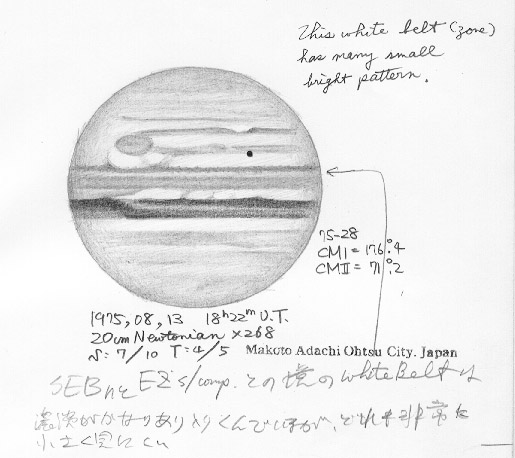 This white belt (zone)
has many small
bright pattern.
75-28
CMI = 176°.4
CMII = 71°.2
1975, 08, 13 18h22m U.T.
20cm Newtonian ×268
S: 7/10 T: 4/5 Makoto Adachi Ohtsu City. Japan
SEBnと EZ s/comp. との境の white Belt は
濃淡がかなりあり入りくんでいるが、どれも非常に
小さく見にくい